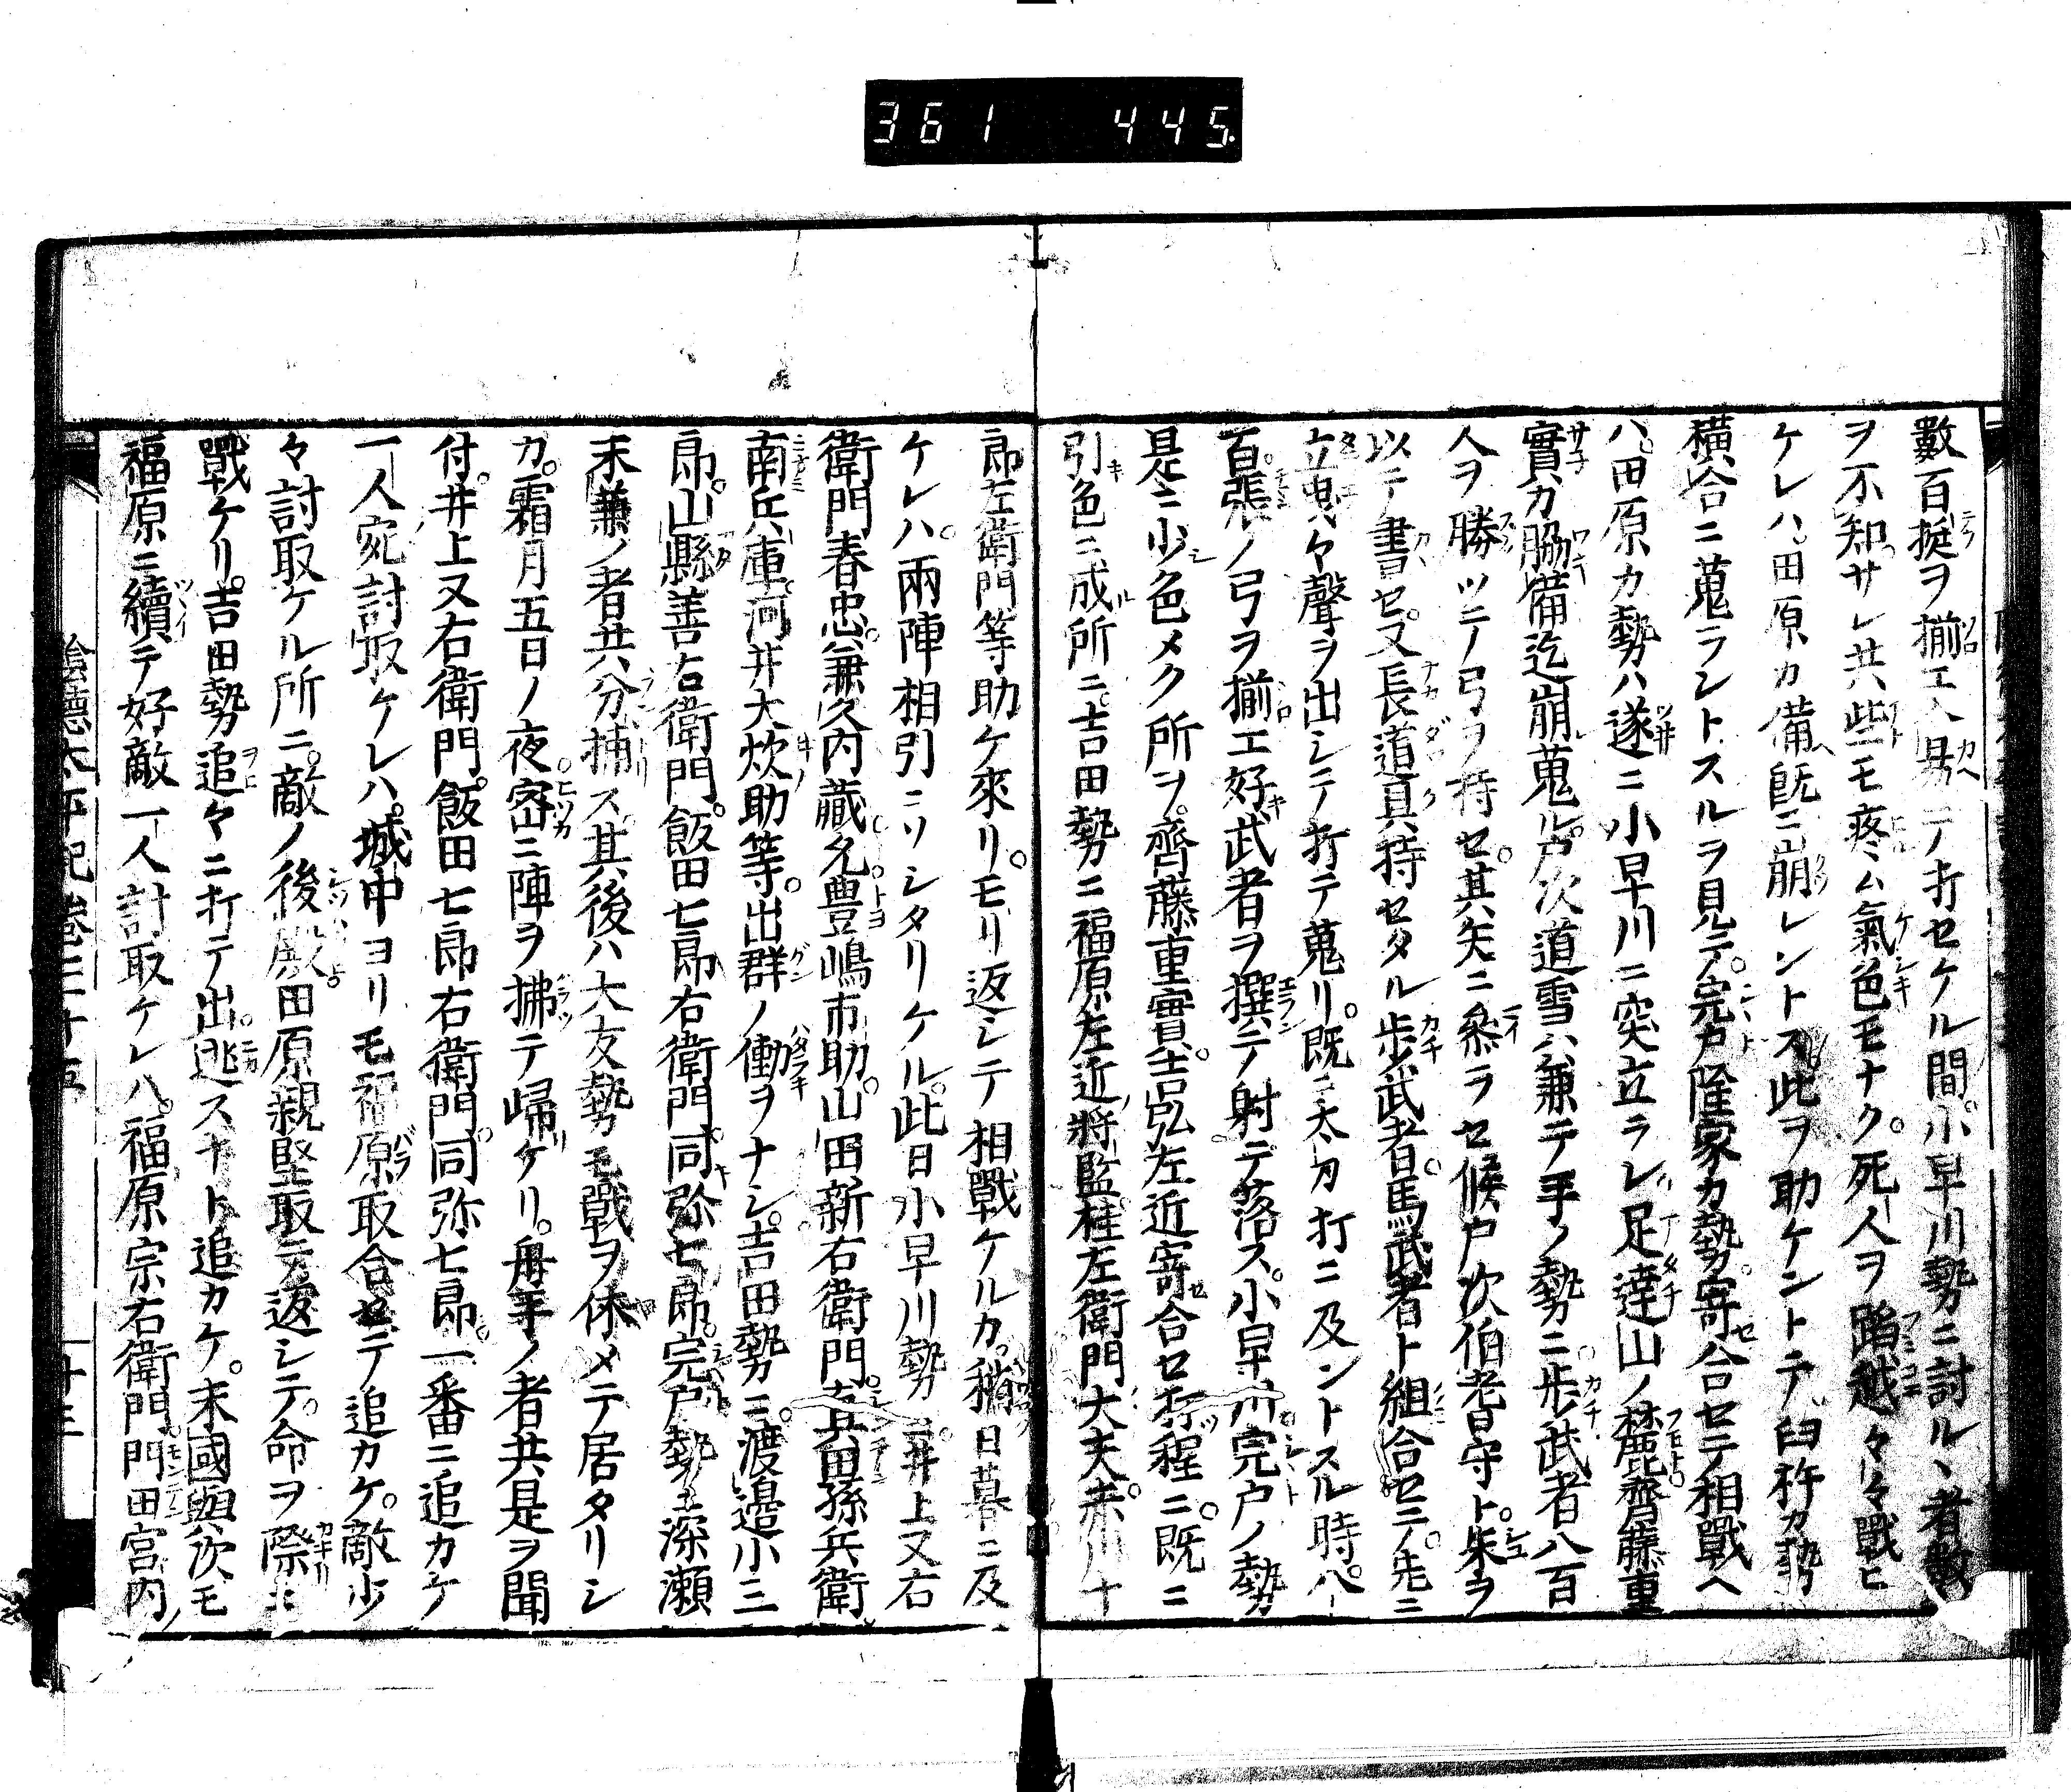 361 445
數百挺ヲ揃エ入易ニテ打セケル間。小早川勢ニ討ルヽ者數
ヲ不知サレ共些モ疼ム氣色モナク。死人ヲ蹈越々々戰ヒ
ケレハ。田原カ備既ニ崩レントス此ヲ助ケントテ臼杵カ勢
横合ニ蒐ラントスルヲ見テ。完戸隆家カ勢。寄合セテ相戰ヘ
ハ。田原カ勢ハ遂ニ小早川ニ突立ラレ足達山ノ麓齊藤重
實カ脇備迄崩蒐ル。戸次道雪ハ兼テ手ノ勢ニ歩武者八百
人ヲ勝ツニノ弓ヲ持セ。其矢ニ參ラセ候戸次伯耆守ト。朱ヲ
以テ書セ。又長道具持セタル歩武者。馬武者ト組合セニノ。先ニ
立曳々聲ヲ出シテ打テ蒐リ。既ニ太刀打ニ及ントスル時。八
百張ノ弓ヲ揃エ好武者ヲ撰テ射テ落ス。小早川完戸ノ勢
是ニ少色メク所ヲ。齊藤重實。吉弘左近寄合セ打程ニ。既ニ
引色ニ成所ニ。吉田勢ニ福原左近將監桂左衛門大夫。赤川十
郎左衛門等助ケ來リ。モリ返シテ相戰ケルカ。稍日暮ニ及
ケレハ。兩陣相引ニソシタリケル。此日小早川勢ニ。井上又右
衛門春忠。兼久内藏允豊嶋市助。山田新右衛門。眞田孫兵衛
南兵庫。河井大炊助等。出群ノ働ヲナシ。吉田勢ニ。渡邉小三
郎。山縣善右衛門。飯田七郎右衛門。同弥七郎。完戸勢ニ深瀬
末兼ノ者共分捕ス。其後ハ大友勢モ戰ヲ休メテ居タリシ
カ。霜月五日ノ夜密ニ陣ヲ拂テ歸ケリ。舟手ノ者共是ヲ聞
付。井上又右衛門。飯田七郎右衛門。同弥七郎。一番ニ追カケ
一人宛討取ケレハ。城中ヨリモ福原取合セテ追カケ。敵少
々討取ケル所ニ。敵ノ後殿田原親堅取テ返シテ。命ヲ際ニ
戰ケリ。吉田勢追々ニ打テ出。逃スヤト追カケ。末國與次モ
福原ニ續テ好敵一人討取ケレハ。福原宗右衛門。門田宮内
陰德太平記卷三十五 十三